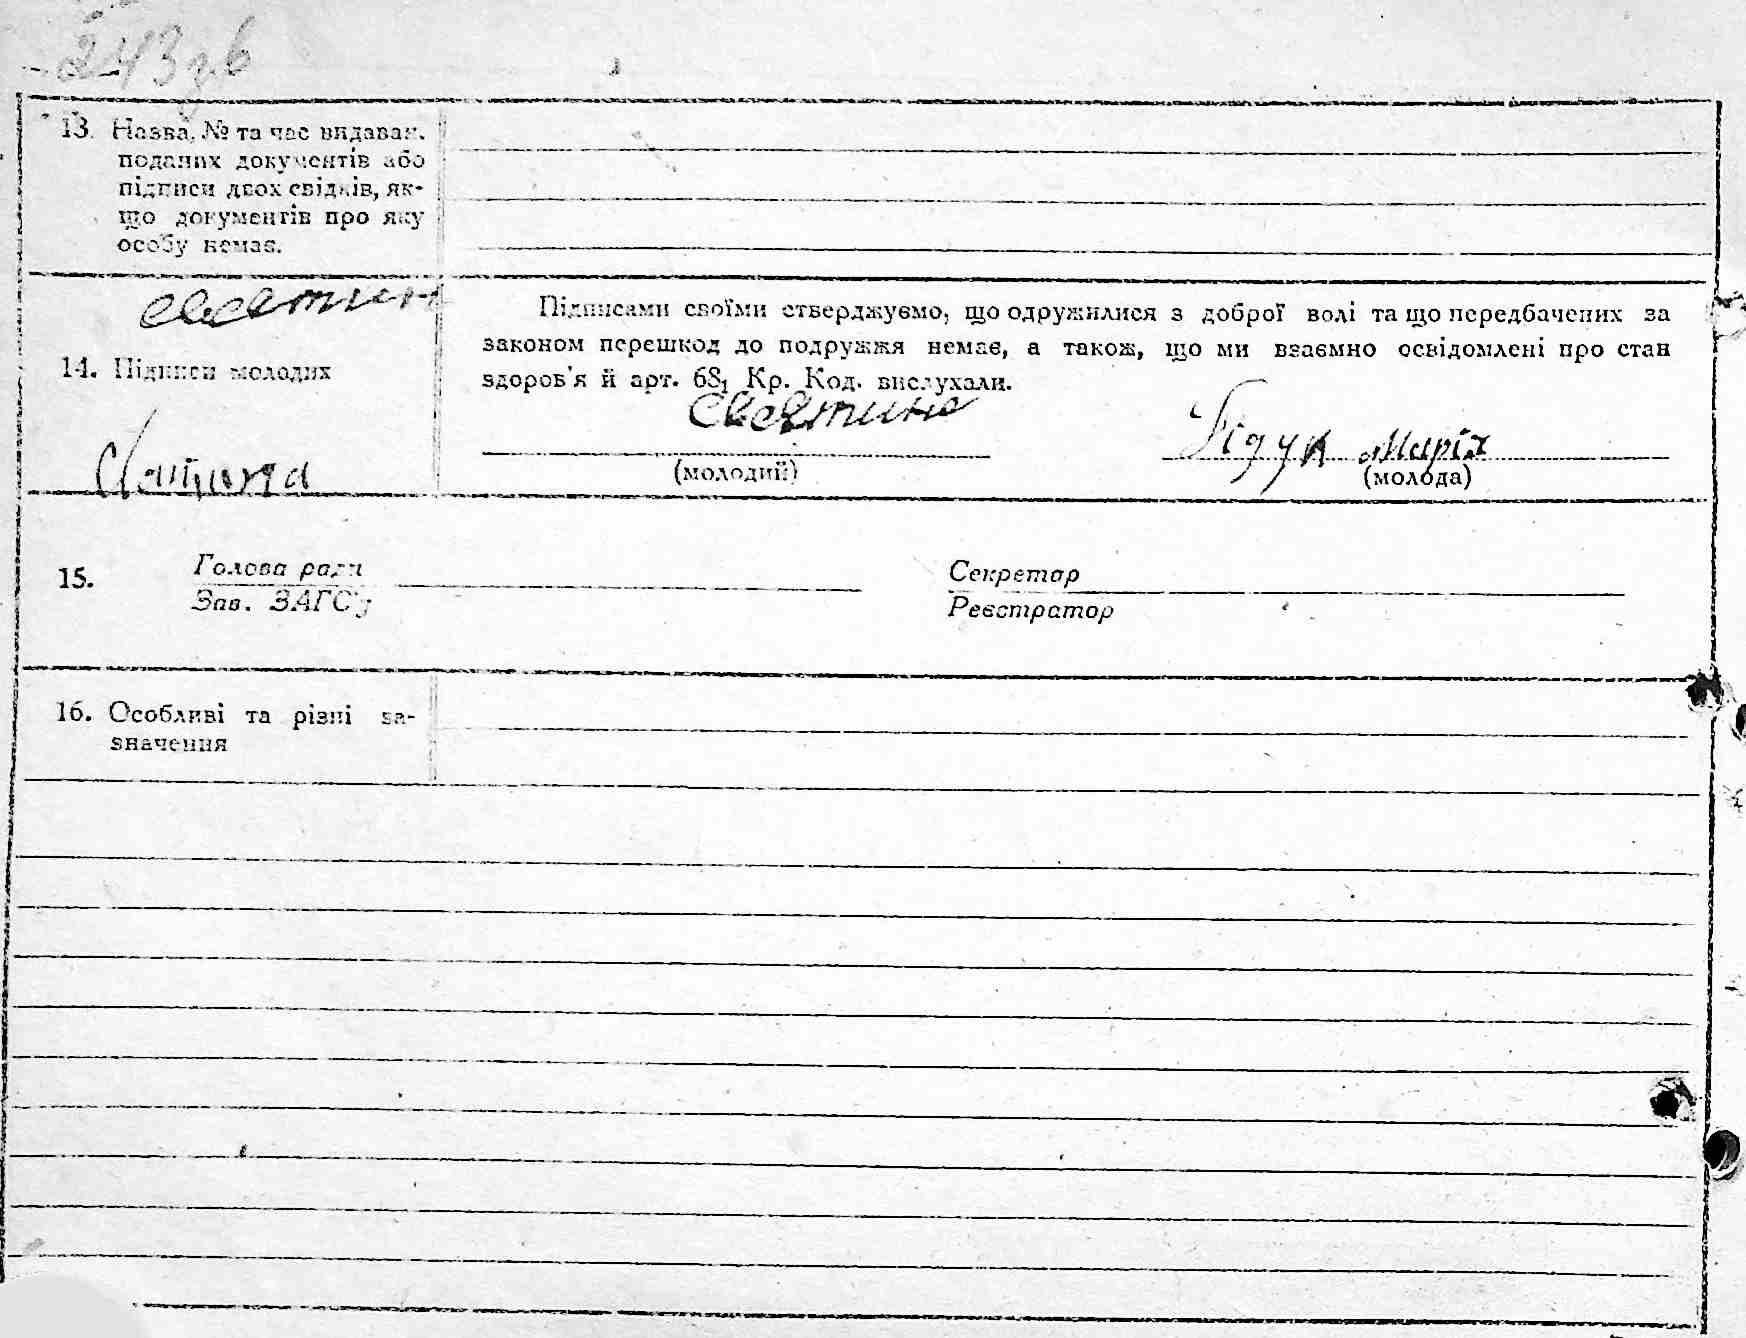 243зв
13. Назва, № та час видаван.
поданих документів або
підписи двох свідків, як-
що документів про яку
особу немає.
Підписами своїми стверджуємо, що одружилися з доброї волі та що передбачених за
законом перешкод до подружжя немає, а також, що ми взаємно освідомлені про стан
здоров'я й арт. 68₁ Кр. Код. вислухали.
14. Підписи молодих
Марія
(молодий)
(молода)
15.
Голова ради
Зав. ЗАГС'у
Секретар
Реєстратор
16. Особливі та різні за-
значення